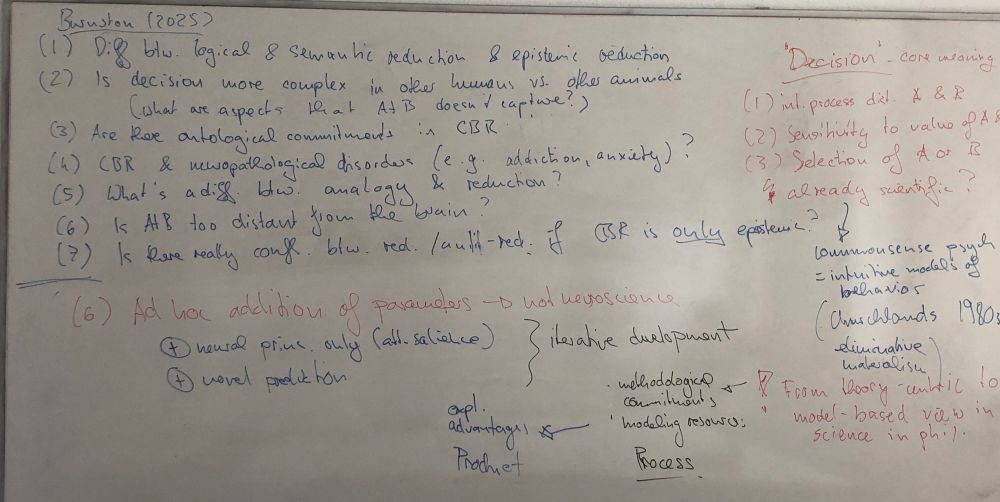 Burnston (2025)
(1) Diff btw. logical & semantic reduction & epistemic reduction
(2) Is decision more complex in other humans vs. other animals
(What are aspects that AtB doesn't capture?)
(3) Are there ontological commitments in CBR
(4) CBR & neuropathological disorders (e.g. addiction, anxiety)?
(5) What's a diff. btw. analogy & reduction?
(6) Is AtB too distant from the brain?
(7) Is there really confl. btw. red. / anti-red. if CBR is only epistemic?
(6) Ad hoc addition of parameters → not neuroscience
+ neural princ. only (att. salience)
+ novel prediction
} iterative development
expl.
advantages ←
Product
· methodological
commitments
· modeling resourc.
Process
"Decision" - core meaning
(1) int. process dist. A & B
(2) Sensitivity to value of A &
(3) Selection of A or B
↳ already scientific?
↓
commonsense psych
= intuitive models of
behavior
(Churchlands 1980s
eliminative
materialism)
From theory-centric to
model-based view in
science in phil.